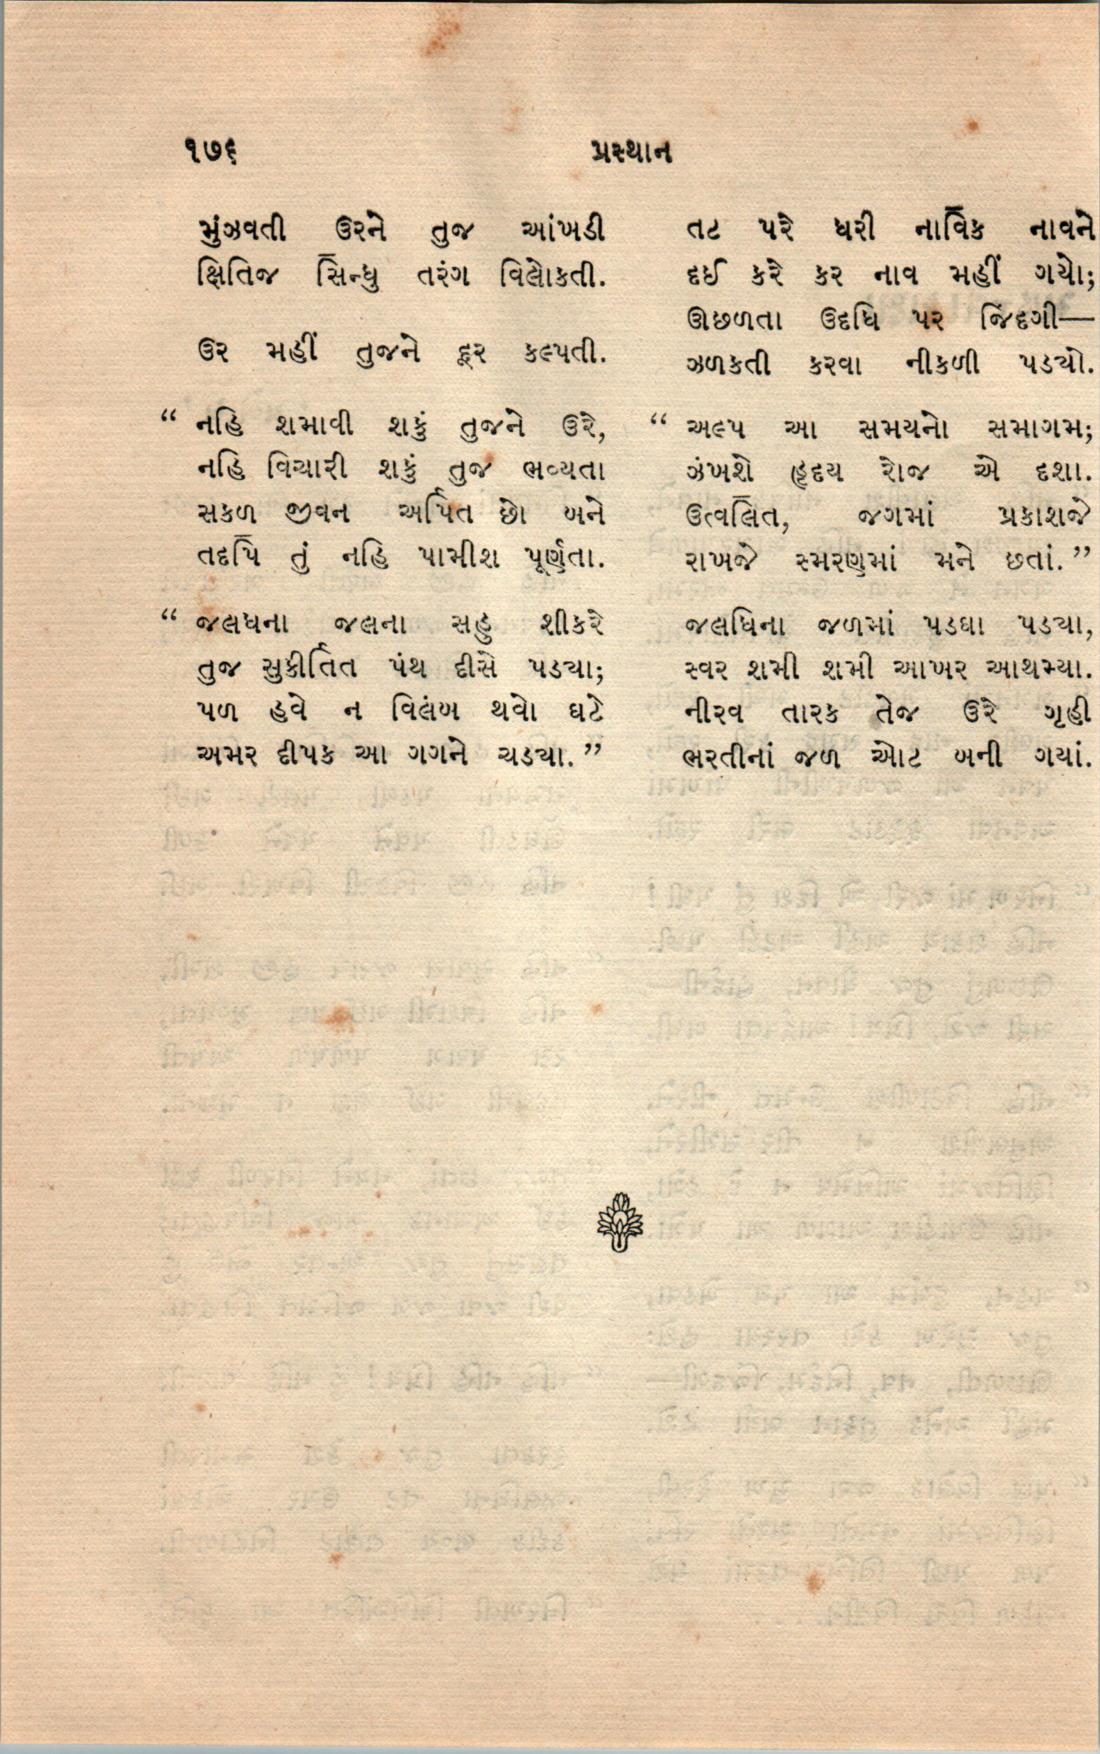 ૧૭૬
પ્રસ્થાન
મુંઝવતી ઉરને તુજ આંખડી
ક્ષિતિજ સિન્ધુ તરંગ વિલોકતી.
ઉર મહીં તુજને દૂર કલ્પતી.
“ નહિ શમાવી શકું તુજને ઉરે,
નહિ વિચારી શકું તુજ ભવ્યતા
સકળ જીવન અર્પિત છો બને
તદપિ તું નહિ પામીશ પૂર્ણતા.
“ જલધના જલના સહુ શીકરે
તુજ સુકીર્તિત પંથ દીસે પડ્યા;
પળ હવે ન વિલંબ થવો ઘટે
અમર દીપક આ ગગને ચડ્યા.”
તટ પરે ધરી નાવિક નાવને
દઈ કરે કર નાવ મહીં ગયો;
ઊછળતા ઉદધિ પર જિંદગી—
ઝળકતી કરવા નીકળી પડ્યો.
“ અલ્પ આ સમયનો સમાગમ;
ઝંખશે હૃદય રોજ એ દશા.
ઉત્વલિત, જગમાં પ્રકાશજે
રાખજે સ્મરણમાં મને છતાં.”
જલધિના જળમાં પડઘા પડ્યા,
સ્વર શમી શમી આખર આથમ્યા.
નીરવ તારક તેજ ઉરે ગૃહી
ભરતીનાં જળ ઓટ બની ગયાં.